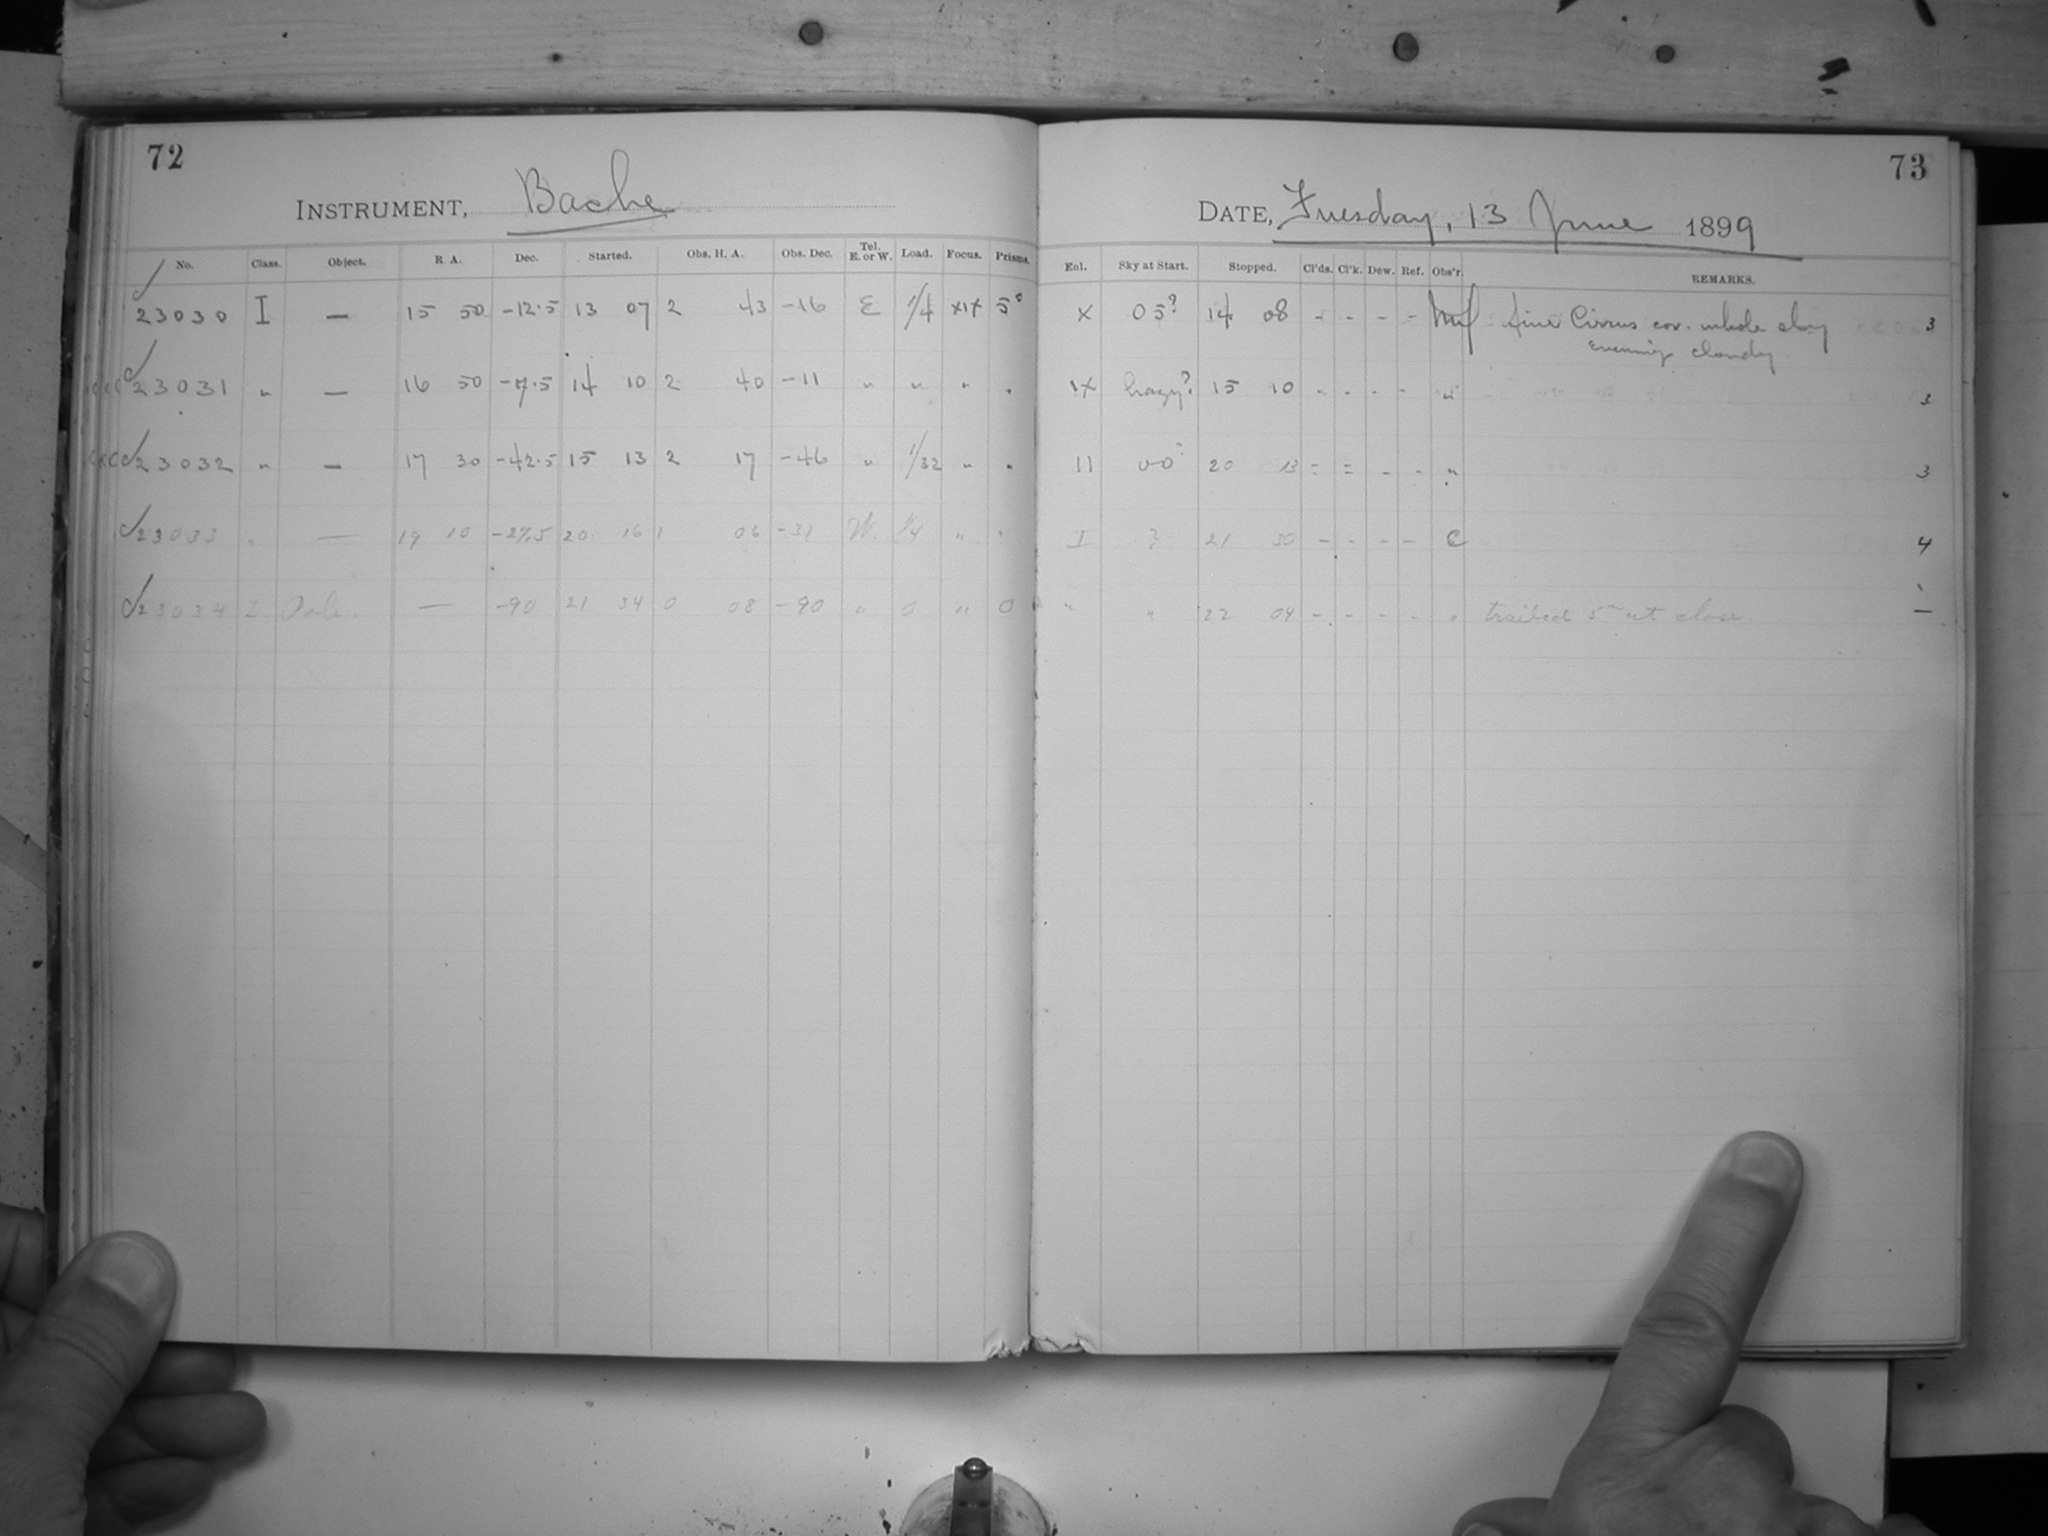 72
73
INSTRUMENT, Bache
DATE, Tuesday, 13 June 1899
No. Class. Object. R A. Dec. Started. Obs. H. A. Obs. Dec. Tel. E. or W. Load. Focus. Prisms. Enl. Sky at Start. Stopped. Cl'ds. Cl'k. Dew. Ref. Obs'r. REMARKS.
23030 I — 15 50 -12.5 13 07 2 43 -16 E 1/4 5° X 05? 14 08 - - - - fine Cirrus cov. whole sky 3
evening cloudy
23031 " — 16 50 -7.5 14 10 2 40 -11 " " " " 1X hazy? 15 10 - - - - " 3
23032 " — 17 30 -42.5 15 13 2 17 -46 " 1/32 " " 11 00 20 13 = = - - " 3
23033 " — 19 10 -27.5 20 16 1 06 -31 W. 1/4 " " I ? 21 30 - - - - C 4
23034 2 Pole. — -90 21 34 0 08 -90 " 0 " 0 " " 22 04 - - - - " trailed 5m at close. —